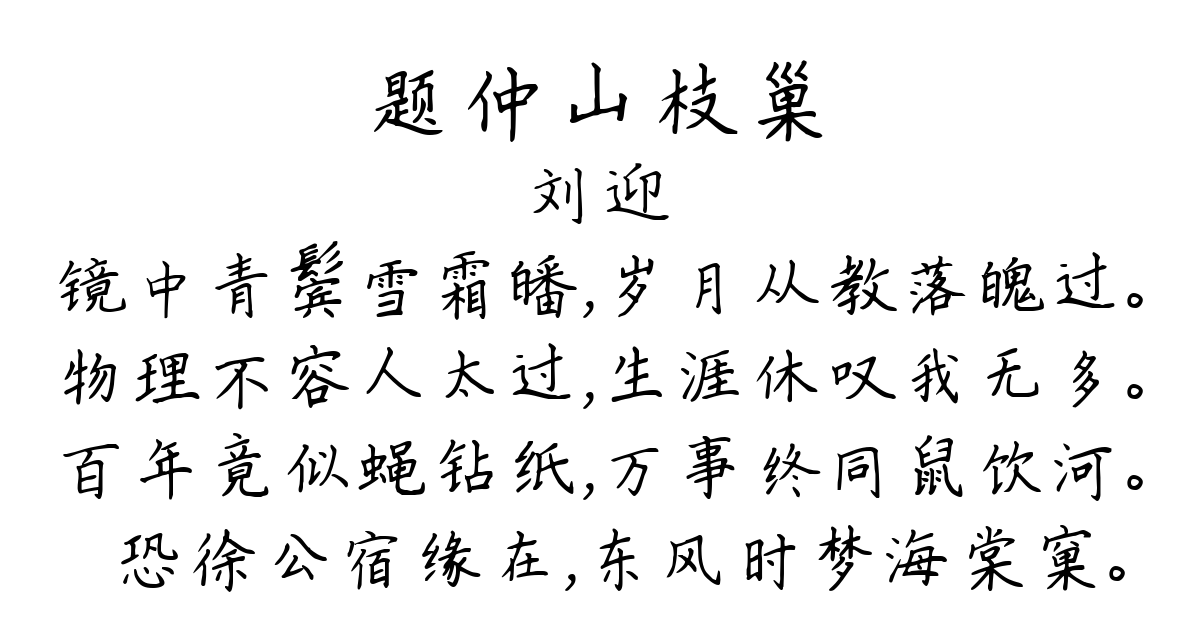 题仲山枝巢
刘迎
镜中青鬓雪霜皤,岁月从教落魄过。
物理不容人太过,生涯休叹我无多。
百年竟似蝇钻纸,万事终同鼠饮河。
恐徐公宿缘在,东风时梦海棠窠。